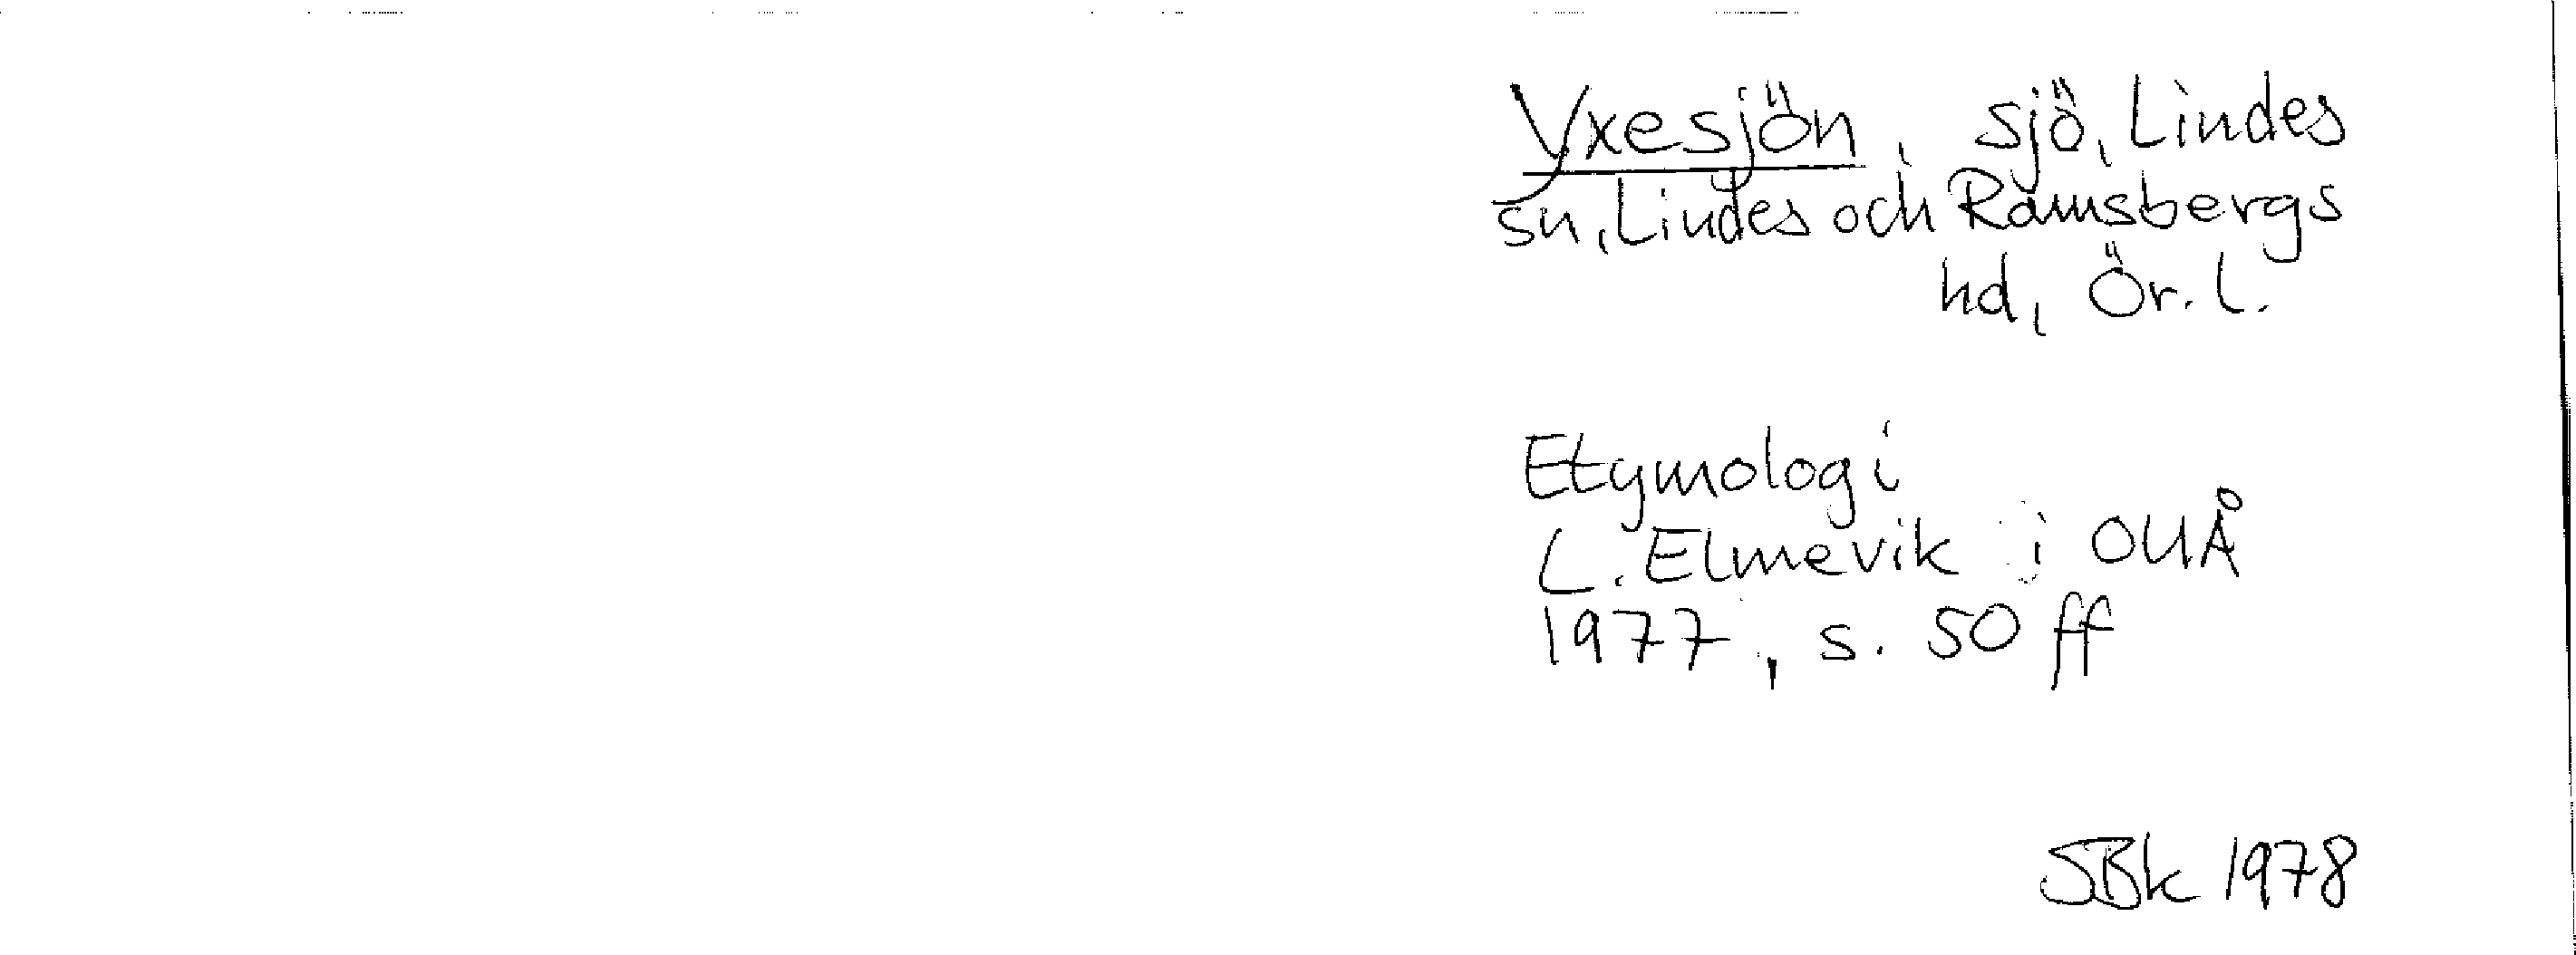 Yxesjön, sjö, Lindes
sn, Lindes och Ramsbergs
hd, Ör. l.
Etymologi
L. Elmevik i OUÅ
1977, s. 50 ff
SBk 1978